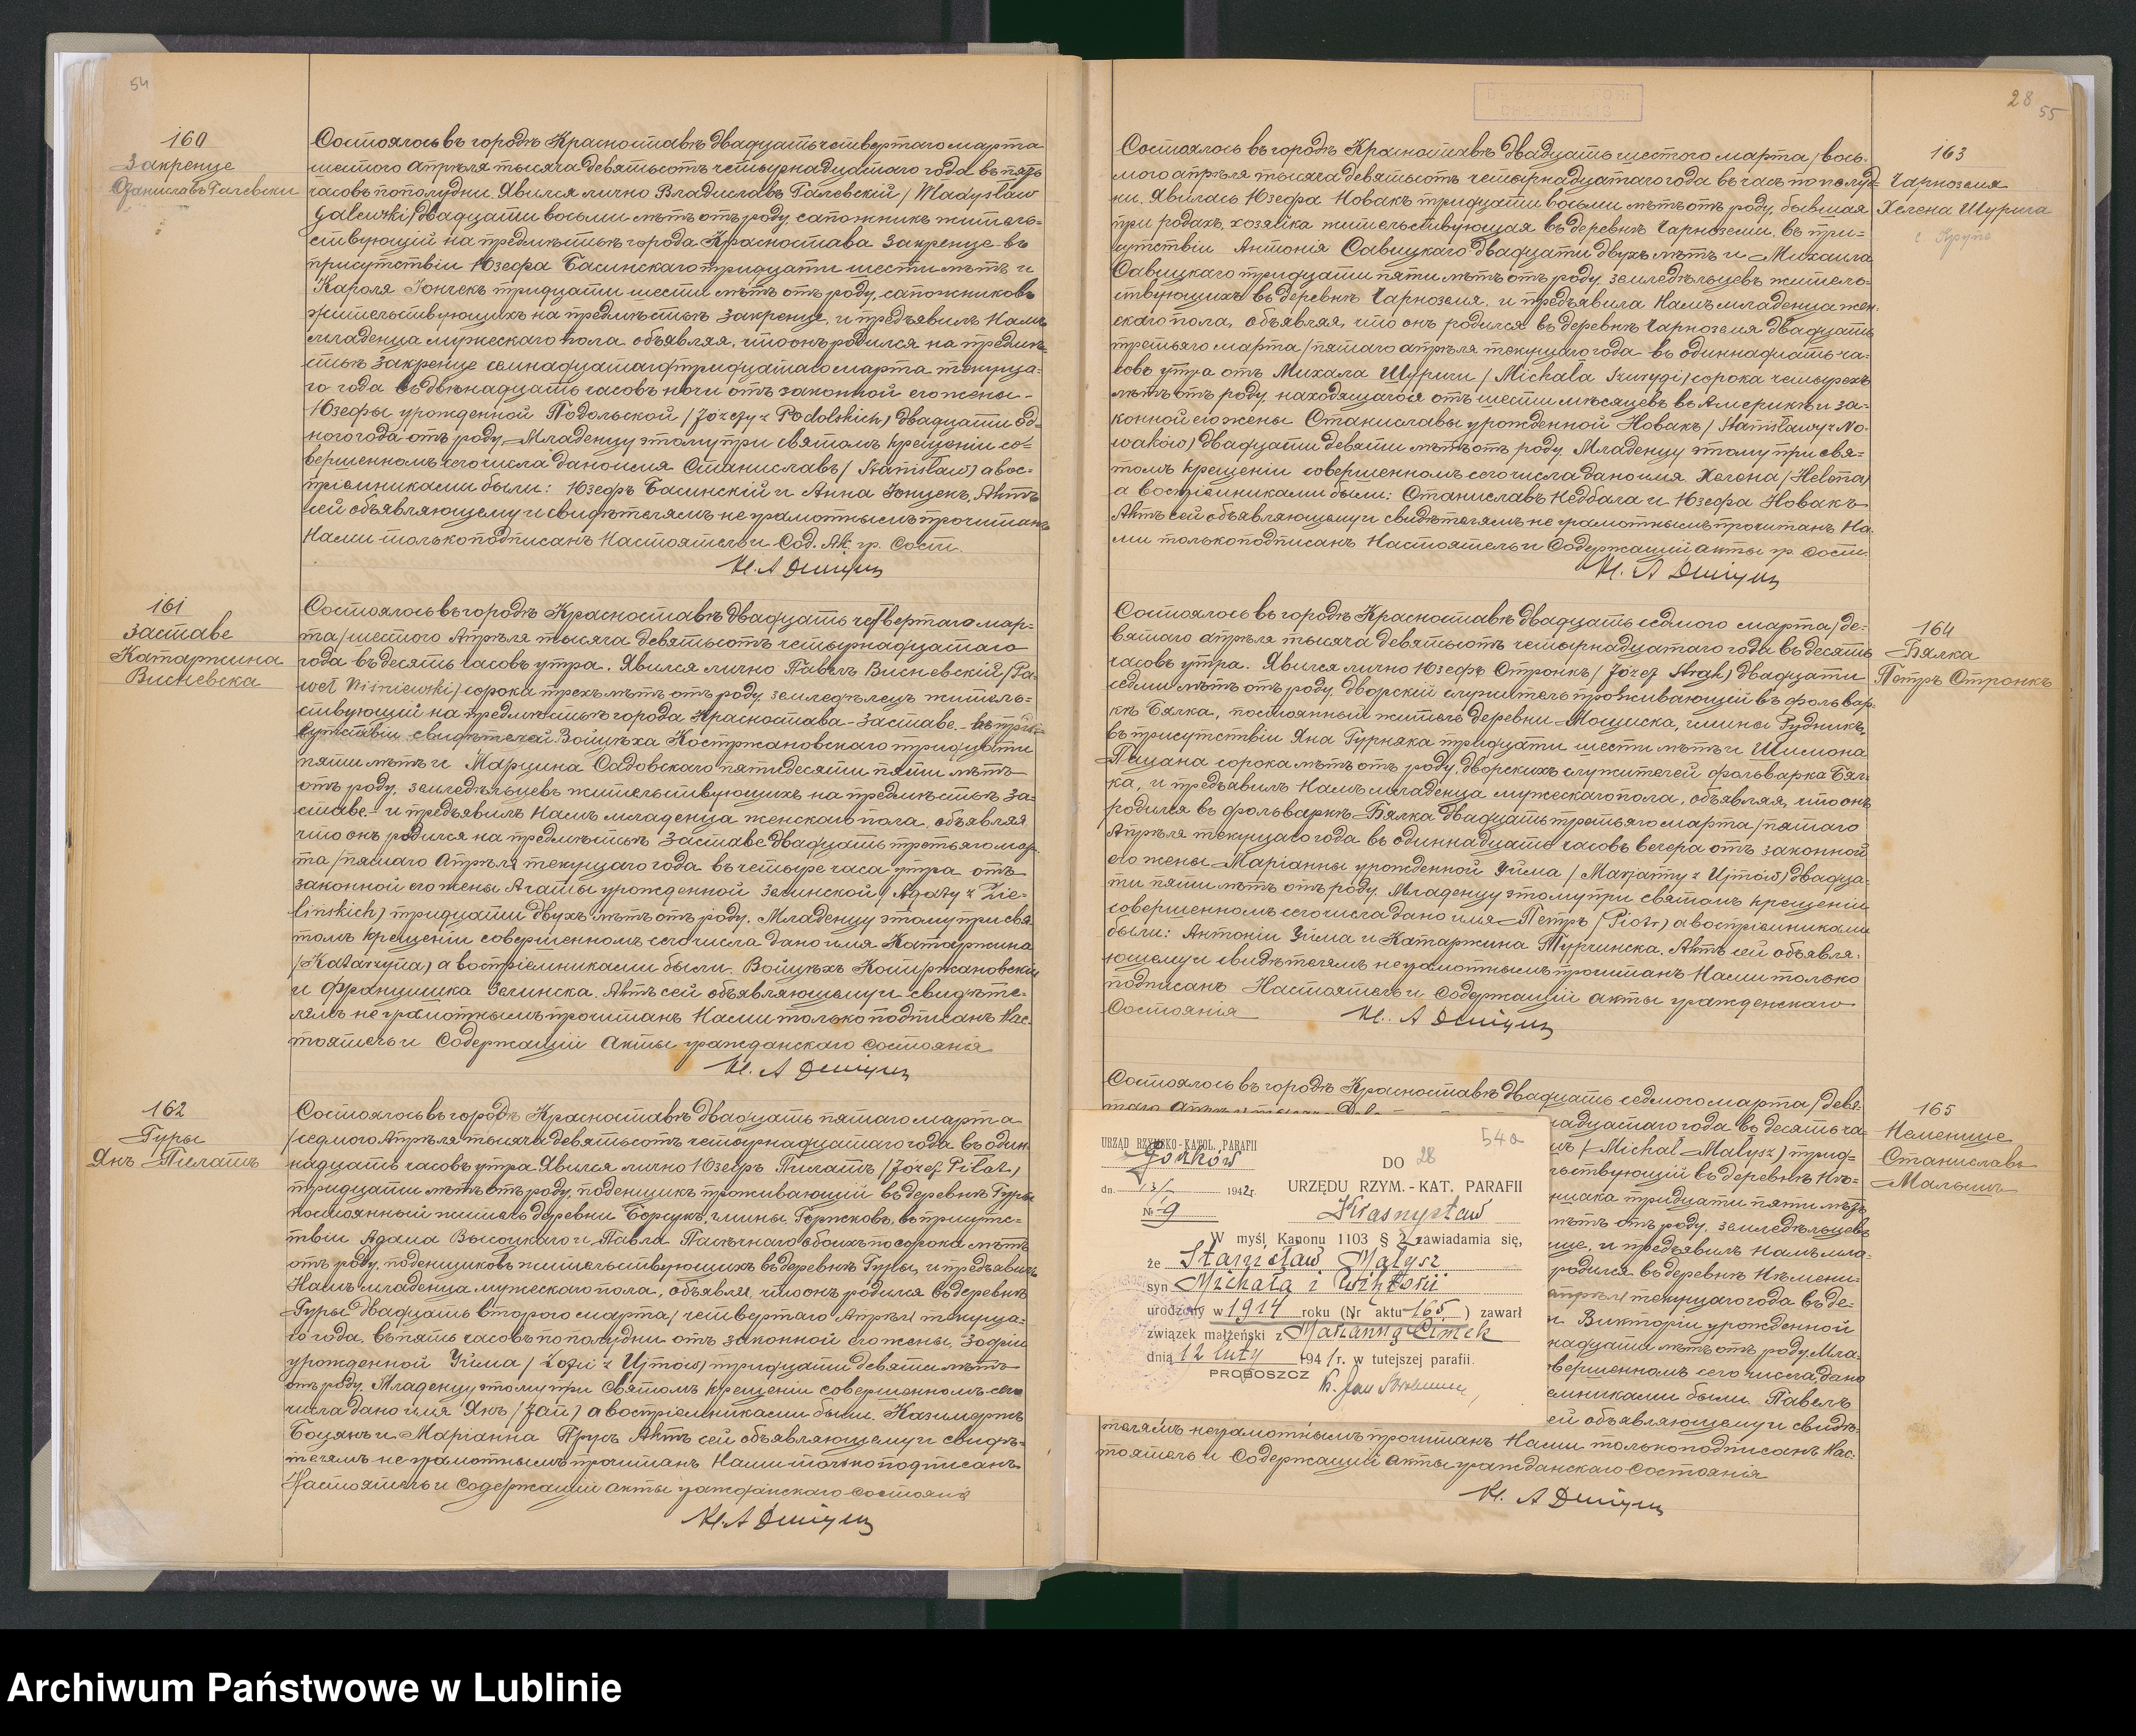 54
160
Закренце
Станиславъ Галевски
Состоялось въ городѣ Красноставѣ двадцать четвертаго марта
шестого апрѣля тысяча девятьсотъ четырнадцатаго года въ пять
часовъ пополудни. Явился лично Владиславъ Галевскій /Władysław
Galewski/ двадцати восьми лѣтъ отъ роду, сапожникъ житель-
ствующій на предмѣстьѣ города Красностава Закренце въ
присутствіи Юзефа Басинскаго тридцати шести лѣтъ и
Кароля Іончекъ тридцати шести лѣтъ отъ роду, сапожниковъ
жительствующихъ на предмѣстьѣ Закренце, и предъявилъ Намъ
младенца мужескаго пола объявляя, что онъ родился на предмѣ-
стьѣ Закренце семнадцатаго/тридцатаго марта текуща-
го года въ двѣнадцать часовъ ночи отъ законной его жены
Юзефы урожденной Подольской /Józefy z Podolskich/ двадцати од-
ного года отъ роду. Младенцу этому при святомъ крещеніи со-
вершенномъ сего числа дано имя Станиславъ /Stanisław/ а вос-
пріемниками были: Юзефъ Басинскій и Анна Іонцекъ. Актъ
сей объявляющему и свидѣтелямъ не грамотнымъ прочитанъ
Нами только подписанъ Настоятель и Сод. Ак. гр. Сост.
161
Заставе
Катаржина
Висневска
Состоялось въ городѣ Красноставѣ двадцать четвертаго мар-
та/шестого Апрѣля тысяча девятьсотъ четырнадцатаго
года въ десять часовъ утра. Явился лично Павелъ Висневскій /Pa-
weł Wiśniewski/ сорока трехъ лѣтъ отъ роду, земледѣлецъ житель-
ствующій на предмѣстьѣ города Красностава-Заставе въ при-
сутствіи свидѣтелей Войцѣха Костржановскаго тридцати
пяти лѣтъ и Марцина Садовскаго пятидесяти пяти лѣтъ
отъ роду, земледѣльцевъ жительствующихъ на предмѣстьѣ За-
ставе и предъявилъ Намъ младенца женскаго пола, объявляя
что онъ родился на предмѣстьѣ Заставе двадцать третьяго мар-
та/пятаго Апрѣля текущаго года въ четыре часа утра отъ
законной его жены Агаты урожденной Зелинской /Agaty z Zie-
lińskich/ тридцати двухъ лѣтъ отъ роду. Младенцу этому при свя-
томъ крещеніи совершенномъ сего числа дано имя Катаржина
/Katarzyna/ а воспріемниками были Войцѣхъ Костржановскій
и Францишка Зелинска. Актъ сей объявляющему и свидѣте-
лямъ не грамотнымъ прочитанъ Нами только подписанъ Нас-
тоятель и Содержащій Акты гражданскаго состоянія
162
Гуры
Янъ Пилатъ
Состоялось въ городѣ Красноставѣ двадцать пятаго марта
/седмого Апрѣля тысяча девятьсотъ четырнадцатаго года въ один-
надцать часовъ утра. Явился лично Юзефъ Пилатъ /Józef Piłat/
тридцати лѣтъ отъ роду, поденщикъ проживающій въ деревнѣ Гуры
постоянный житель деревни Борсукъ, гмины Горжковъ, въ присутс-
твіи Адама Высоцкаго и Павла Пасѣчнаго обоихъ по сорока лѣтъ
отъ роду, поденщиковъ жительствующихъ въ деревнѣ Гуры, и предъявилъ
Намъ младенца мужескаго пола, объявляя, что онъ родился въ деревнѣ
Гуры двадцать второго марта/четвертаго Апрѣля текуща-
го года, въ пять часовъ пополудни отъ законной его жены, Зофіи
урожденной Уйма /Zofii z Ujmów/ тридцати девяти лѣтъ
отъ роду. Младенцу этому при Святомъ крещеніи совершенномъ сего
числа дано имя Янъ /Jan/ а воспріемниками были. Казимержъ
Боцянъ и Маріанна Прусъ. Актъ сей объявляющему и свидѣ-
телямъ не грамотнымъ прочитанъ Нами только подписанъ
Настоятель и Содержащій акты гражданскаго состоянія
28
55
163
Чарноземя
Хелена Щурыга
с Крупе
Состоялось въ городѣ Красноставѣ двадцать шестого марта/вось-
мого апрѣля тысяча девятьсотъ четырнадцатаго года въ часъ пополуд-
ни. Явилась Юзефа Новакъ тридцати восьми лѣтъ отъ роду, бывшая
при родахъ, хозяйка жительствующая въ деревнѣ Чарноземя, въ при-
сутствіи Антонія Савицкаго двадцати двухъ лѣтъ и Михаила
Савицкаго тридцати пяти лѣтъ отъ роду, земледѣльцевъ житель-
ствующихъ въ деревнѣ Чарноземя, и предъявила Намъ младенца жен-
скаго пола, объявляя, что онъ родился въ деревнѣ Чарноземя двадцать
третьяго марта/пятаго апрѣля текущаго года въ одиннадцать ча-
совъ утра отъ Михала Щурыги /Michała Szurygi/ сорока четырехъ
лѣтъ отъ роду, находящагося отъ шести мѣсяцевъ въ Америкѣ и за-
конной его жены Станиславы урожденной Новакъ /Stanisławy z No-
waków/ двадцати девяти лѣтъ отъ роду. Младенцу этому при свя-
томъ крещеніи совершенномъ сего числа дано имя Хелена /Helena/
а воспріемниками были: Станиславъ Недбала и Юзефа Новакъ
Актъ сей объявляющему и свидѣтелямъ не грамотнымъ прочитанъ На-
ми только подписанъ Настоятель и Содержащій акты гр. сост.
164
Бялка
Петръ Стронкъ
Состоялось въ городѣ Красноставѣ двадцать седмого марта/де-
вятаго апрѣля тысяча девятьсотъ четырнадцатаго года въ десять
часовъ утра. Явился лично Юзефъ Стронкъ /Józef Strąk/ двадцати
седми лѣтъ отъ роду, дворскій служитель проживающій въ фольвар-
кѣ Бялка, постоянный житель деревни Мощиска, гмины Рудникъ,
въ присутствіи Яна Гурняка тридцати шести лѣтъ и Шимона
Пацана сорока лѣтъ отъ роду, дворскихъ служителей фольварка Бял-
ка, и предъявилъ Намъ младенца мужескаго пола, объявляя, что онъ
родился въ фольваркѣ Бялка двадцать третьяго марта/пятаго
Апрѣля текущаго года въ одиннадцать часовъ вечера отъ законной
его жены Маріанны урожденной Уйма /Maryanny z Ujmów/ двадца-
ти пяти лѣтъ отъ роду. Младенцу этому при святомъ крещеніи
совершенномъ сего числа дано имя Петръ /Piotr/ а воспріемниками
были: Антоніи Уйма и Катаржина Турчинска. Актъ сей объявля-
ющему и свидѣтелямъ не грамотнымъ прочитанъ Нами только
подписанъ Настоятель и Содержащій акты гражденскаго
Состоянія
165
Неменице
Станиславъ
Малышъ
Состоялось въ городѣ Красноставѣ двадцать седмого марта/девя-
надцатаго года въ десять ча-
/Michał Małysz/ трид-
ствующій въ деревнѣ Нѣ-
тридцати пяти лѣтъ
лѣтъ отъ роду, земледѣльцевъ
и предъявилъ Намъ мла-
родился въ деревнѣ Нѣмени-
апрѣля текущаго года въ де-
Викторіи урожденной
надцати лѣтъ отъ роду. Мла-
вершенномъ сего числа дано
емниками были Павелъ
ей объявляющему и свидѣ-
телямъ неграмотнымъ прочитанъ Нами только подписанъ Нас-
тоятель и Содержащій акты гражданскаго состоянія
54a
URZĄD RZYMSKO-KATOL. PARAFII
Gorzków
dn. 13/1 1942 r.
№ 9
DO 28
URZĘDU RZYM.-KAT. PARAFII
Krasnystaw
W myśl Kanonu 1103 § 2 zawiadamia się,
że Stanisław Małysz
syn Michała i Wiktorii
urodzony w 1914 roku (Nr aktu 165) zawarł
związek małżeński z Marianną Cimek
dnia 12 luty 1941 r. w tutejszej parafii.
PROBOSZCZ
Archiwum Państwowe w Lublinie